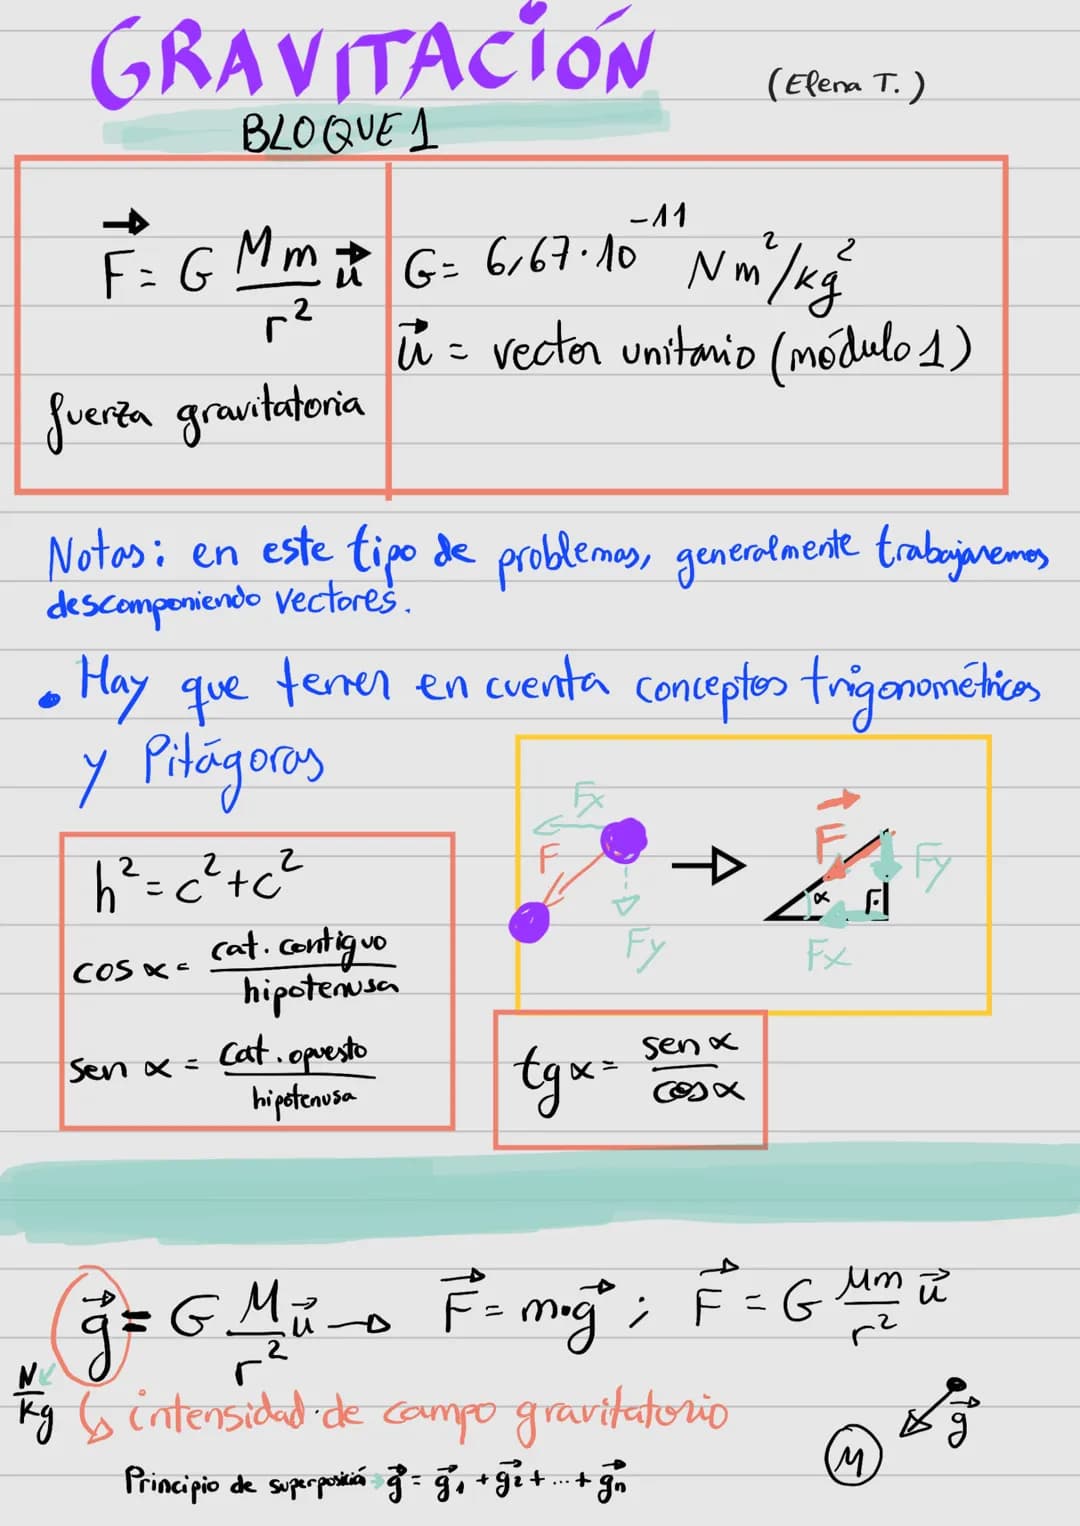 GRAVITACIÓN
(Elena T.)
BLOQUE 1
F⃗ = G Mm/r² u⃗
fuerza gravitatoria
G = 6,67·10⁻¹¹ Nm²/kg²
u⃗ = vector unitario (módulo 1)
Notas: en este tipo de problemas, generalmente trabajaremos
descomponiendo vectores.
• Hay que tener en cuenta conceptos trigonométricos
y Pitágoras
h² = c² + c²
cos α = cat. contiguo / hipotenusa
sen α = cat. opuesto / hipotenusa
Fx
F
Fy
F⃗
Fy
α
Fx
tg α = sen α / cos α
g⃗ = G M/r² u⃗ → F⃗ = m·g⃗ ; F⃗ = G Mm/r² u⃗
N/kg
↳ intensidad de campo gravitatorio
M
g⃗
Principio de superposición → g⃗ = g⃗₁ + g⃗₂ + ... + g⃗n